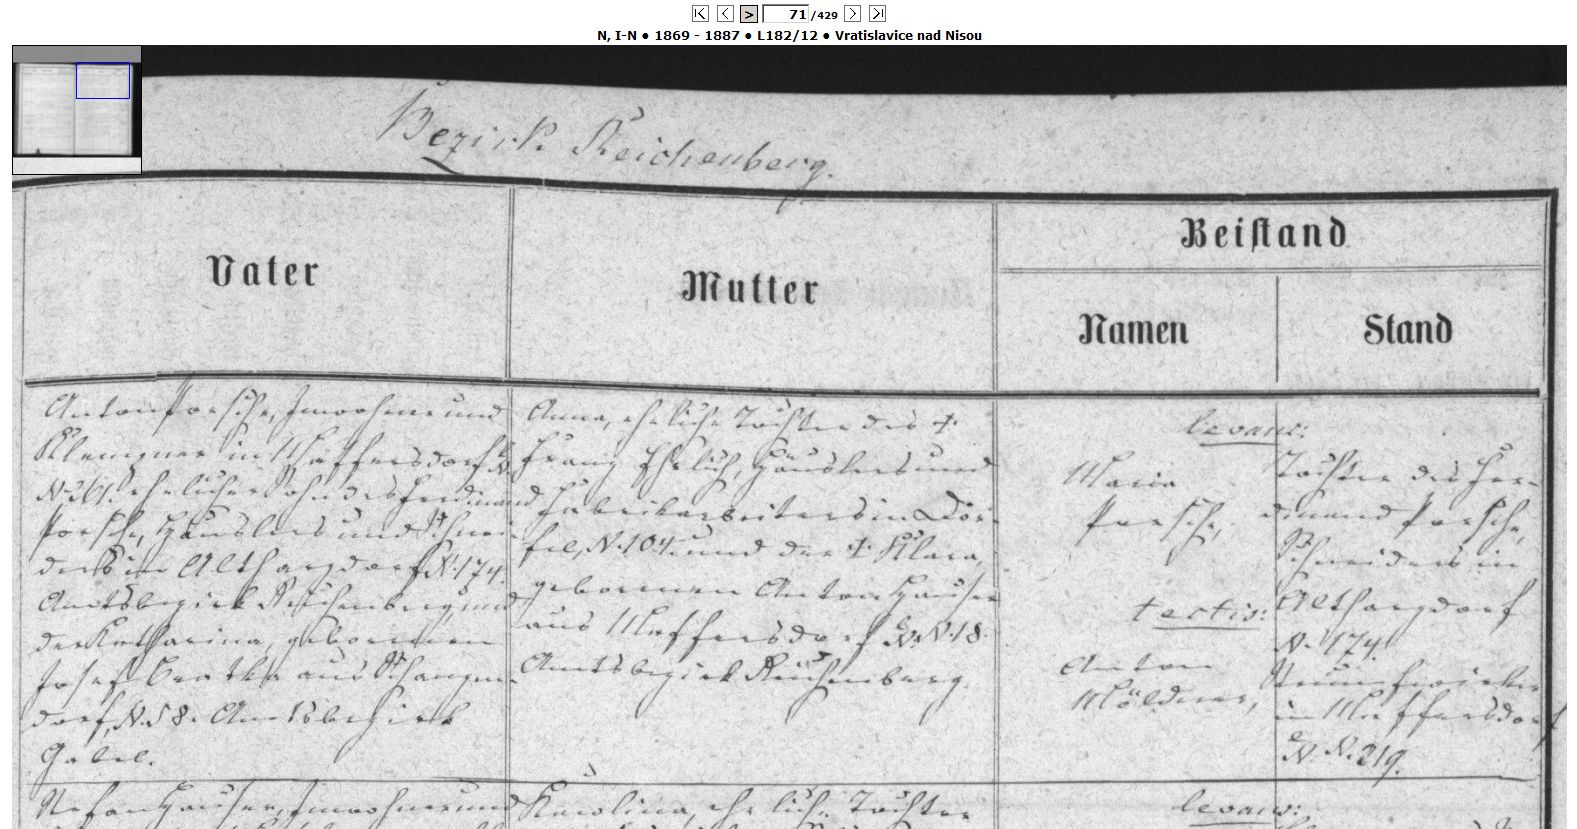 71 /429
N, I-N ● 1869 - 1887 ● L182/12 ● Vratislavice nad Nisou
Bezirk Reichenberg.
Vater
Mutter
Beistand
Namen
Stand
Anton Porsche, Inwohner und
Klempner in Maffersdorf N.
N. 361. ehelicher Sohn des Ferdinand
Porsche, Häuslers und Schnei-
ders in Altharzdorf N. 174.
Amtsbezirk Reichenberg und
der Katharina, gebornen
Josef aus
dorf, N. 58. Amtsbezirk
Gabel.
Anna, eheliche Tochter des †.
Franz Ehrlich, Häuslers und
Fabrikarbeiters in Dör-
fel, N. 104. und der †. Klara,
gebornen Anton Hauser
aus Maffersdorf N. 18.
Amtsbezirk Reichenberg.
levans:
Maria
Porsche,
testis:
Anton
Möldner,
Tochter des Fer-
dinand Porsche,
Schneiders in
Altharzdorf
N. 174.
in Maffersdorf
N. 219.
Stefan Hauser, Inwohner und
Karolina, eheliche Tochter
levans: